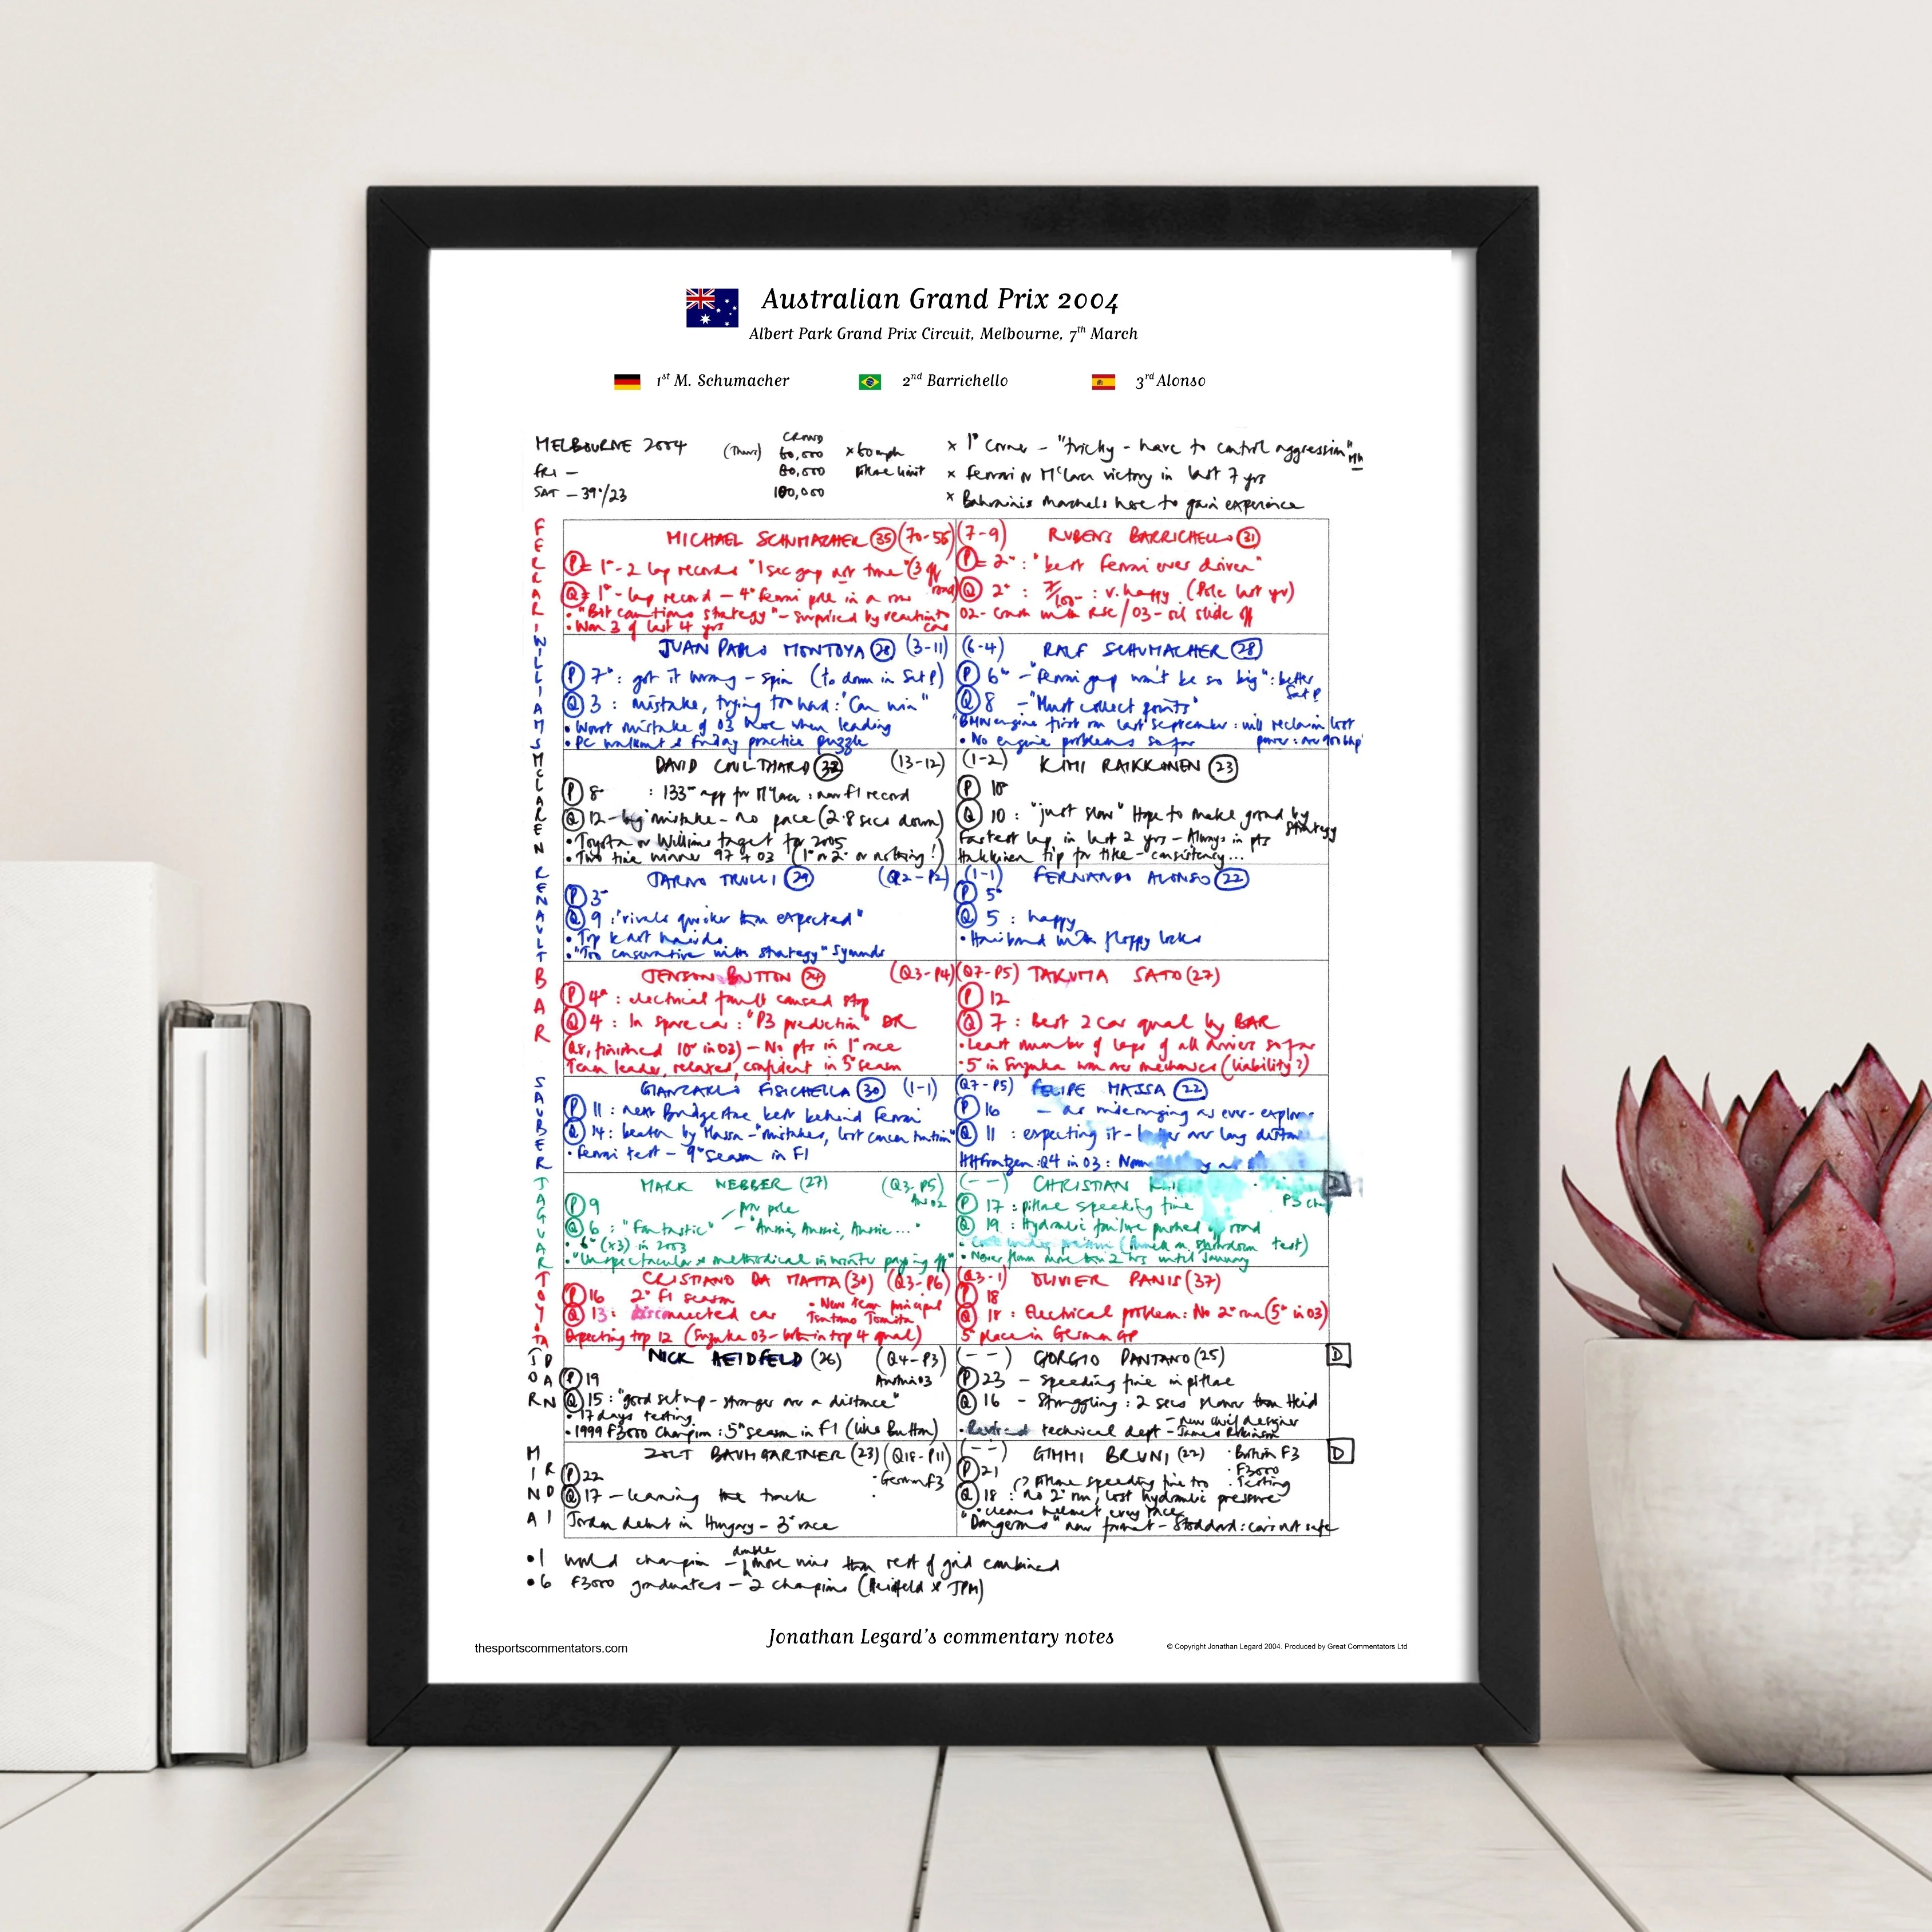 Australian Grand Prix 2004
Albert Park Grand Prix Circuit, Melbourne, 7th March
1st M. Schumacher 2nd Barrichello 3rd Alonso
MELBOURNE 2004 (Thurs) CROWD 60,000 x 60mph x 1° corner - "tricky - have to control aggression"
FRI - 80,000 Pitlane limit x Ferrari or McLaren victory in last 7 yrs
SAT - 39°/23 100,000 x Bahrainis marshals here to gain experience
FERRARI
MICHAEL SCHUMACHER 35 (70-55) (7-9) RUBENS BARRICHELLO 31
P = 1° - 2 lap records "1 sec gap not true" P = 2° : "best Ferrari ever driven"
Q = 1° - lap record - 4° Ferrari pole in a row Q 2° : v. happy (Pole last yr)
• "Bit cautious strategy" - surprised by reaction to car 02 - crash with RSC / 03 - oil slide off
• Won 3 of last 4 yrs
WILLIAMS
JUAN PABLO MONTOYA 28 (3-11) (6-4) RALF SCHUMACHER 28
P 7° : got it wrong - spin (to down in Sat P) P 6° - "Ferrari gap won't be so big" : better Sat P
Q 3 : mistake, trying too hard : "Can win" Q 8 - "Must collect points"
• Worst mistake of 03 here when leading BMW engine first ran last September : will reclaim lost
• PC walkout & Friday practice puzzle • No engine problems so far power : over 900bhp
McLAREN
DAVID COULTHARD (13-12) (1-2) KIMI RAIKKONEN 23
P 8° : 133° app for McLaren : new F1 record P 10°
Q 12 - big mistake - no pace (2.8 secs down) Q 10 : "just slow" Hope to make ground by strategy
• Toyota or Williams target for 2005 Fastest lap in last 2 yrs - Always in pts
• Two time winner 97 + 03 (1° or 2° or nothing!) Hakkinen tip for title - consistency...
RENAULT
JARNO TRULLI 29 (Q2-P2) (1-1) FERNANDO ALONSO 22
P 3° P 5°
Q 9 : "rivals quicker than expected" Q 5 : happy
• Top kart hairdo • Hairband with floppy locks
• "Too conservative with strategy" Symonds
BAR
JENSON BUTTON 24 (Q3-P4) (Q7-P5) TAKUMA SATO (27)
P 4° : electrical fault caused stop P 12
Q 4 : In spare car : "P3 prediction" DR Q 7 : Best 2 car qual by BAR
(Q8, finished 10° in 03) - No pts in 1° race • Least number of laps of all drivers so far
Team leader, relaxed, confident in 5° season • 5 in Suzuka won over mechanics (liability?)
SAUBER
GIANCARLO FISICHELLA 30 (1-1) (Q7-P5) FELIPE MASSA 22
P 11 : next Bridgestone best behind Ferrari P 16 - as wideranging as ever - explores
Q 14 : beaten by Massa - "mistakes, lost concentration" Q 11 : expecting it - better over long distance
• Ferrari test - 9° season in F1 HH Frentzen : Q4 in 03 :
JAGUAR
MARK WEBBER (27) (Q3-P5) Aus 02 (--) CHRISTIAN D
P 9 P 17 : pitlane speeding fine
Q 6 : "Fantastic" - "Aussie, Aussie, Aussie..." Q 19 : Hydraulic failure pushed up road
• 6° (x3) in 2003 test)
• "Unspectacular & methodical in winter paying off" • Never flown more than 2 hrs until January
TOYOTA
CRISTIANO DA MATTA (30) (Q3-P6) (Q3-1) OLIVIER PANIS (37)
P 16 2° F1 season • New team principal P 18
Q 13 : disconnected car Tsutomu Tomita Q 18 : Electrical problem : No 2° run (5° in 03)
Expecting top 12 (Suzuka 03 - both in top 4 qual) 5 place in German GP
JORDAN
NICK HEIDFELD (26) (Q4-P3) Austria 03 (--) GIORGIO PANTANO (25) D
P 19 P 23 - speeding fine in pitlane
Q 15 : "good set up - stronger over a distance" Q 16 - Struggling : 2 secs slower than Heid
• 17 days testing - new chief designer
• 1999 F3000 Champion : 5° season in F1 (like Button) technical dept - James Robinson
MINARDI
ZSOLT BAUMGARTNER (23) (Q18-P11) (--) GIMMI BRUNI (22) • British F3 D
P 22 • German F3 P 21 Pitlane speeding fine too • F3000 • Testing
Q 17 - learning the track Q 18 : no 2° run, lost hydraulic pressure
• cleans helmet every race
Jordan debut in Hungary - 3° race "Dangerous" new format - Stoddard : cars not safe
• 1 world champion - double more wins than rest of grid combined
• 6 F3000 graduates - 2 champions (Heidfeld & JPM)
Jonathan Legard's commentary notes
thesportscommentators.com
© Copyright Jonathan Legard 2004. Produced by Great Commentators Ltd